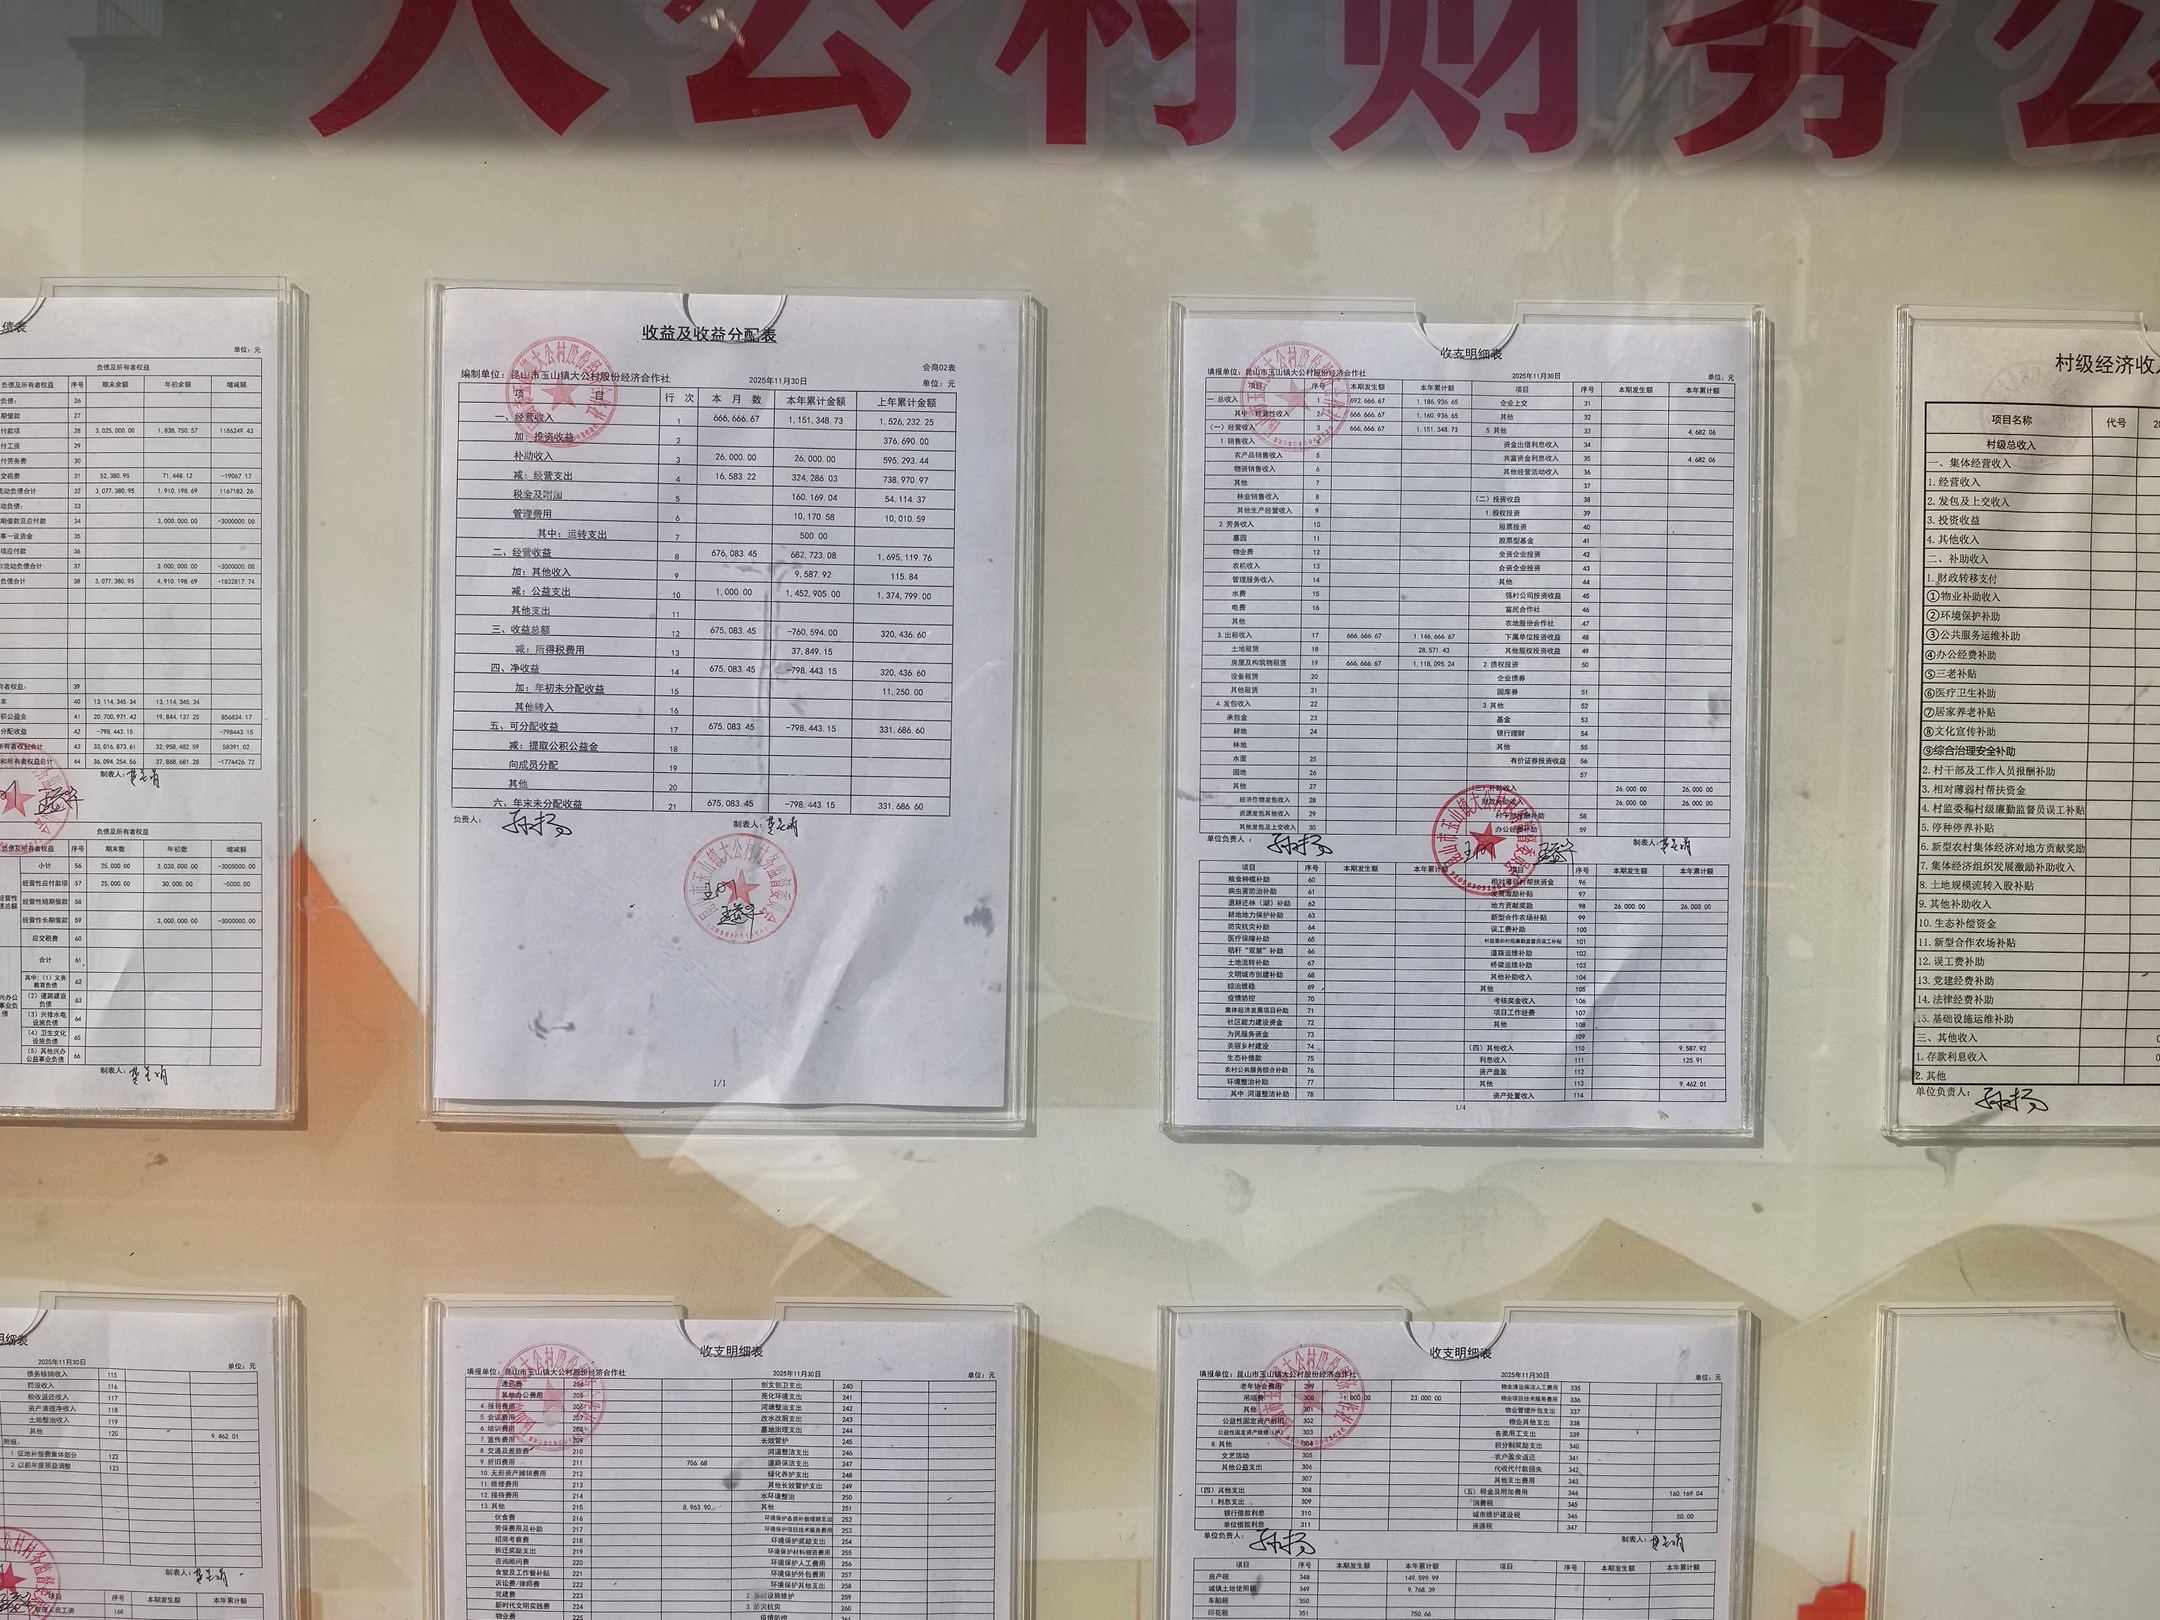 大公村财务公
债表
单位：元
负债及所有者权益
负债及所有者权益 序号 期末余额 年初余额 增减额
负债： 26
期借款 27
付款项 28 3,025,000.00 1,838,750.57 1186249.43
付工资 29
付劳务费 30
交税费 31 52,380.95 71,448.12 -19067.17
流动负债合计 32 3,077,380.95 1,910,198.69 1167182.26
动负债： 33
期借款及应付款 34 3,000,000.00 -3000000.00
事一议资金 35
项应付款 36
非流动负债合计 37 3,000,000.00 -3000000.00
负债合计 38 3,077,380.95 4,910,198.69 -1832817.74
有者权益： 39
本 40 13,114,345.34 13,114,345.34
积公益金 41 20,700,971.42 19,844,137.25 856834.17
分配收益 42 -798,443.15 -798443.15
所有者权益合计 43 33,016,873.61 32,958,482.59 58391.02
和所有者权益总计 44 36,094,254.56 37,868,681.28 -1774426.72
制表人：
负债及所有者权益
负债及所有者权益 序号 期末数 年初数 增减额
小计 56 25,000.00 3,030,000.00 -3005000.00
经营性应付款项 57 25,000.00 30,000.00 -5000.00
经营性短期借款 58
经营性长期借款 59 3,000,000.00 -3000000.00
应交税费 60
合计 61
其中：（1）义务教育负债 62
（2）道路建设负债 63
（3）兴修水电设施负债 64
（4）卫生文化设施负债 65
（5）其他兴办公益事业负债 66
制表人：
收益及收益分配表
会商02表
编制单位：昆山市玉山镇大公村股份经济合作社 2025年11月30日 单位：元
项 目 行 次 本 月 数 本年累计金额 上年累计金额
一、经营收入 1 666,666.67 1,151,348.73 1,526,232.25
加：投资收益 2 376,690.00
补助收入 3 26,000.00 26,000.00 595,293.44
减：经营支出 4 16,583.22 324,286.03 738,970.97
税金及附加 5 160,169.04 54,114.37
管理费用 6 10,170.58 10,010.59
其中：运转支出 7 500.00
二、经营收益 8 676,083.45 682,723.08 1,695,119.76
加：其他收入 9 9,587.92 115.84
减：公益支出 10 1,000.00 1,452,905.00 1,374,799.00
其他支出 11
三、收益总额 12 675,083.45 -760,594.00 320,436.60
减：所得税费用 13 37,849.15
四、净收益 14 675,083.45 -798,443.15 320,436.60
加：年初未分配收益 15 11,250.00
其他转入 16
五、可分配收益 17 675,083.45 -798,443.15 331,686.60
减：提取公积公益金 18
向成员分配 19
其他 20
六、年末未分配收益 21 675,083.45 -798,443.15 331,686.60
负责人： 制表人：
1/1
收支明细表
填报单位：昆山市玉山镇大公村股份经济合作社 2025年11月30日 单位：元
项目 序号 本期发生额 本年累计额 项目 序号 本期发生额 本年累计额
一.总收入 1 692,666.67 1,186,936.65 企业上交 31
其中：经营性收入 2 666,666.67 1,160,936.65 其他 32
（一）经营收入 3 666,666.67 1,151,348.73 5.其他 33 4,682.06
1.销售收入 4 资金出借利息收入 34
农产品销售收入 5 共富资金利息收入 35 4,682.06
物资销售收入 6 其他经营活动收入 36
其他 7 37
林业销售收入 8 （二）投资收益 38
其他生产经营收入 9 1.股权投资 39
2.劳务收入 10 股票投资 40
墓园 11 股票型基金 41
物业费 12 全资企业投资 42
农机收入 13 合资企业投资 43
管理服务收入 14 其他 44
水费 15 强村公司投资收益 45
电费 16 富民合作社 46
其他 农地股份合作社 47
3.出租收入 17 666,666.67 1,146,666.67 下属单位投资收益 48
土地租赁 18 28,571.43 其他股权投资收益 49
房屋及构筑物租赁 19 666,666.67 1,118,095.24 2.债权投资 50
设备租赁 20 企业债券
其他租赁 21 国库券 51
4.发包收入 22 3.其他 52
承包金 23 基金 53
耕地 24 银行理财 54
林地 其他 55
水面 25 有价证券投资收益 56
园地 26 57
其他 27 （三）补助收入 26,000.00 26,000.00
经济作物发包收入 28 财政补助收入 26,000.00 26,000.00
资源发包其他收入 29 村干部报酬补助 58
其他发包及上交收入 30 办公经费补助 59
单位负责人： 制表人：
项目 序号 本期发生额 本年累计额 项目 序号 本期发生额 本年累计额
粮食种植补助 60 相对薄弱村帮扶资金 96
病虫害防治补助 61 发展激励补贴 97
退耕还林（湖）补助 62 地方贡献奖励 98 26,000.00 26,000.00
耕地地力保护补助 63 新型合作农场补贴 99
防灾抗灾补助 64 误工费补助 100
医疗保障补助 65 村监委和村级廉勤监督员误工补贴 101
秸秆“双禁”补助 66 道路运维补助 102
土地流转补助 67 桥梁运维补助 103
文明城市创建补助 68 其他补助收入 104
综治维稳 69 其他 105
疫情防控 70 考核奖金收入 106
集体经济发展项目补助 71 项目工作经费 107
社区能力建设资金 72 其他 108
为民服务资金 73 109
美丽乡村建设 74 （四）其他收入 110 9,587.92
生态补偿款 75 利息收入 111 125.91
农村公共服务综合补助 76 资产盘盈 112
环境整治补助 77 其他 113 9,462.01
其中 河道整洁补助 78 资产处置收入 114
1/4
村级经济收
项目名称 代号
村级总收入
一、集体经营收入
1.经营收入
2.发包及上交收入
3.投资收益
4.其他收入
二、补助收入
1.财政转移支付
①物业补助收入
②环境保护补助
③公共服务运维补助
④办公经费补助
⑤三老补贴
⑥医疗卫生补助
⑦居家养老补贴
⑧文化宣传补助
⑨综合治理安全补助
2.村干部及工作人员报酬补助
3.相对薄弱村帮扶资金
4.村监委和村级廉勤监督员误工补贴
5.停种停养补贴
6.新型农村集体经济对地方贡献奖励
7.集体经济组织发展激励补助收入
8.土地规模流转入股补贴
9.其他补助收入
10.生态补偿资金
11.新型合作农场补贴
12.误工费补助
13.党建经费补助
14.法律经费补助
15.基础设施运维补助
三、其他收入
1.存款利息收入
2.其他
单位负责人：
明细表
2025年11月30日 单位：元
债务核销收入 115
罚没收入 116
税收返还收入 117
资产清理净收入 118
土地整治收入 119
其他 120 9,462.01
附报：
1.征地补偿费集体部分 122
2.以前年度损益调整 123
制表人：
项目 序号 本期发生额 本年累计额
管理人员工资 168
收支明细表
填报单位：昆山市玉山镇大公村股份经济合作社 2025年11月30日 单位：元
通讯费 204 创文创卫支出 240
其他办公费用 205 亮化环境支出 241
4.报刊费用 206 河塘整治支出 242
5.会议费用 207 改水改厕支出 243
6.培训费用 208 墓地治理支出 244
7.宣传费用 209 长效管护 245
8.交通及差旅费 210 河道整洁支出 246
9.折旧费用 211 706.68 道路保洁支出 247
10.无形资产摊销费用 212 绿化养护支出 248
11.维修费用 213 其他长效管护支出 249
12.接待费用 214 水环境整治 250
13.其他 215 8,963.90 其他 251
伙食费 216 252
劳保费用及补助 217 环境保护项目技术服务费用 253
招商考察费 218 环境保护奖励支出 254
拆迁奖励支出 219 环境保护材料物资费用 255
咨询顾问费 220 环境保护人工费用 256
食堂及工作餐补贴 221 环境保护外包费用 257
诉讼费/律师费 222 环境保护其他支出 258
党建费 223 259
新时代文明实践费 224 3.防灾抗灾 260
物业费 225 疫情防控 261
收支明细表
填报单位：昆山市玉山镇大公村股份经济合作社 2025年11月30日 单位：元
老年协会费用 299 物业清运保洁人工费用 335
吊唁费 300 1,000.00 23,000.00 物业项目技术服务费用 336
其他 301 物业管理外包支出 337
公益性固定资产折旧 302 物业其他支出 338
公益性固定资产维修（护） 303 各类用工支出 339
8.其他 304 积分制奖励支出 340
文艺活动 305 农户盈余返还 341
其他公益支出 306 代收代付款损失 342
307 其他支出费用 343
（四）其他支出 308 （五）税金及附加费用 344 160,169.04
1.利息支出 309 消费税 345
银行借款利息 310 城市维护建设税 346 50.00
单位借款利息 311 资源税 347
单位负责人： 制表人：
项目 序号 本期发生额 本年累计额 项目 序号 本期发生额 本年累计额
房产税 348 149,599.99
城镇土地使用税 349 9,768.39
车船税 350
印花税 351 750.66